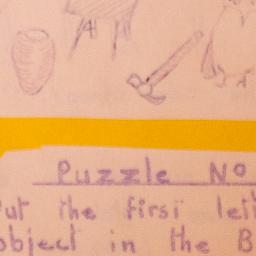 Puzzle No
Put the first lett
object in the B